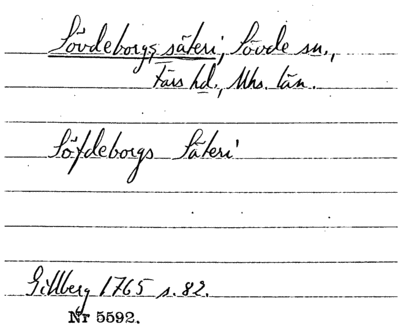 Sövdeborgs säteri, Sövde sn.,
Färs hd., Mhs. län.
Söfdeborgs Säteri
Gillberg 1765 s. 82.
Nr 5592.